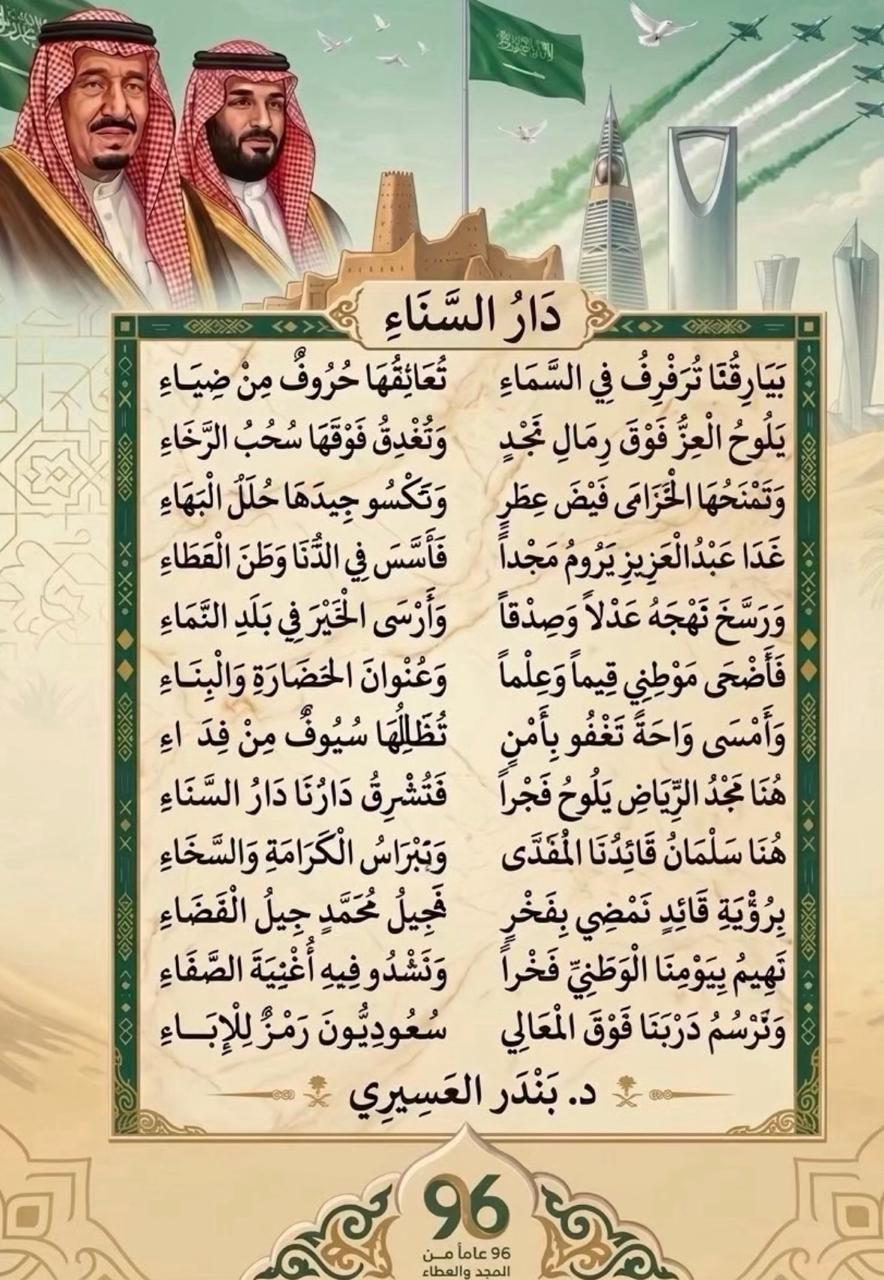 دَارُ السَّنَاءِ
بَيَارِقُنَا تُرَفْرِفُ فِي السَّمَاءِ تُعَانِقُهَا حُرُوفٌ مِنْ ضِيَـاءِ
يَلُوحُ الْعِزُّ فَوْقَ رِمَالِ نَجْدٍ وَتُغْدِقُ فَوْقَهَا سُحُبُ الرَّخَاءِ
وَتَمْنَحُهَا الْخُزَامَى فَيْضَ عِطْرٍ وَتَكْسُو جِيدَهَا حُلَلُ الْبَهَاءِ
غَدَا عَبْدُالْعَزِيزِ يَرُومُ مَجْداً فَأَسَّسَ فِي الدُّنَا وَطَنَ الْعَطَاءِ
وَرَسَّخَ نَهْجَهُ عَدْلاً وَصِدْقاً وَأَرْسَى الْخَيْرَ فِي بَلَدِ النَّمَاءِ
فَأَضْحَى مَوْطِنِي قِيماً وَعِلْماً وَعُنْوانَ الْحَضَارَةِ وَالْبِنَـاءِ
وَأَمْسَى وَاحَةً تَغْفُو بِأَمْنٍ تُظَلِّلُهَا سُيُوفٌ مِنْ فِدَ اءِ
هُنَا مَجْدُ الرِّيَاضِ يَلُوحُ فَجْراً فَتُشْرِقُ دَارُنَا دَارُ السَّنَاءِ
هُنَا سَلْمَانُ قَائِدُنَا الْمُفَدَّى وَنِبْرَاسُ الْكَرَامَةِ وَالسَّخَاءِ
بِرُؤْيَةِ قَائِدٍ نَمْضِي بِفَخْرٍ فَجِيلُ مُحَمَّدٍ جِيلُ الْفَضَاءِ
نَهِيمُ بِيَوْمِنَا الْوَطَنِيِّ فَخْراً وَنَشْدُو فِيهِ أُغْنِيَةَ الصَّفَاءِ
وَنَرْسُمُ دَرْبَنَا فَوْقَ الْمَعَالِي سُعُودِيُّونَ رَمْزٌ لِلْإِبَـــاءِ
د. بَنْدَر العَسِيرِي
96
96 عاماً مــن
المجد والعطاء